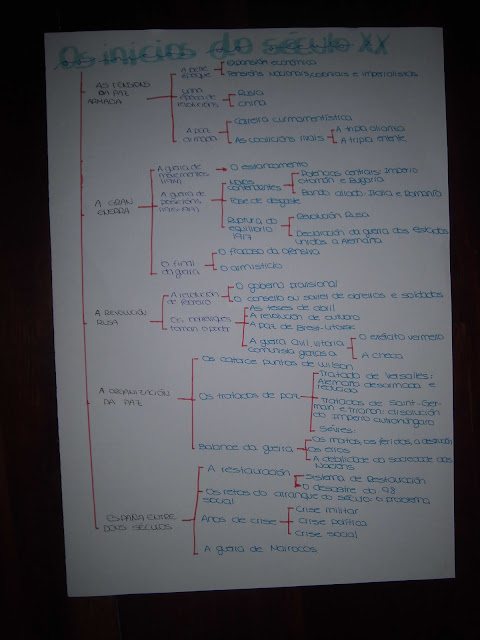 Os inicios do século XX
AS TENSIÓNS
DA PAZ
ARMADA
A belle
époque
Expansión económica
Tensións nacionais, coloniais e imperialistas
Unha
época de
revolucións
Rusia
China
A paz
armada
Carreira armamentística
As coalicións rivais
A tripla alianza
A tripla entente
A GRAN
GUERRA
A guerra de
movementos
(1914)
O estancamento
A guerra de
posicións
(1915-1917)
Novos
contendentes
Potencias centrais: Imperio
otomán e Bulgaria
Bando aliado: Italia e Romanía
Fase de desgaste
Ruptura do
equilibrio
1917
Revolución Rusa
Declaración da guerra dos Estados
Unidos a Alemaña
O final
da guerra
O fracaso da ofensiva
O armisticio
A REVOLUCIÓN
RUSA
A revolución
de febreiro
O goberno provisional
O consello ou soviet de obreiros e soldados
Os bolxeviques
toman o poder
As teses de abril
A revolución de outubro
A paz de Brest-Litovsk
A guerra civil, vitoria
comunista
O exército vermello
A checa
A ORGANIZACIÓN
DA PAZ
Os catorce puntos de Wilson
Os tratados de paz
Tratado de Versalles:
Alemaña desarmada e
reducida
Tratados de Saint-Ger-
main e Trianon: disolución
do Imperio austrohúngaro
Sèvres:
Balance da guerra
Os mortos, os feridos, a destrución
Os erros
A debilidade da sociedade das
Nacións
ESPAÑA ENTRE
DOUS SÉCULOS
A restauración
Sistema de Restauración
O desastre do 98
Os retos do arranque do século: o problema
social
Anos de crise
Crise militar
Crise política
Crise social
A guerra de Marrocos